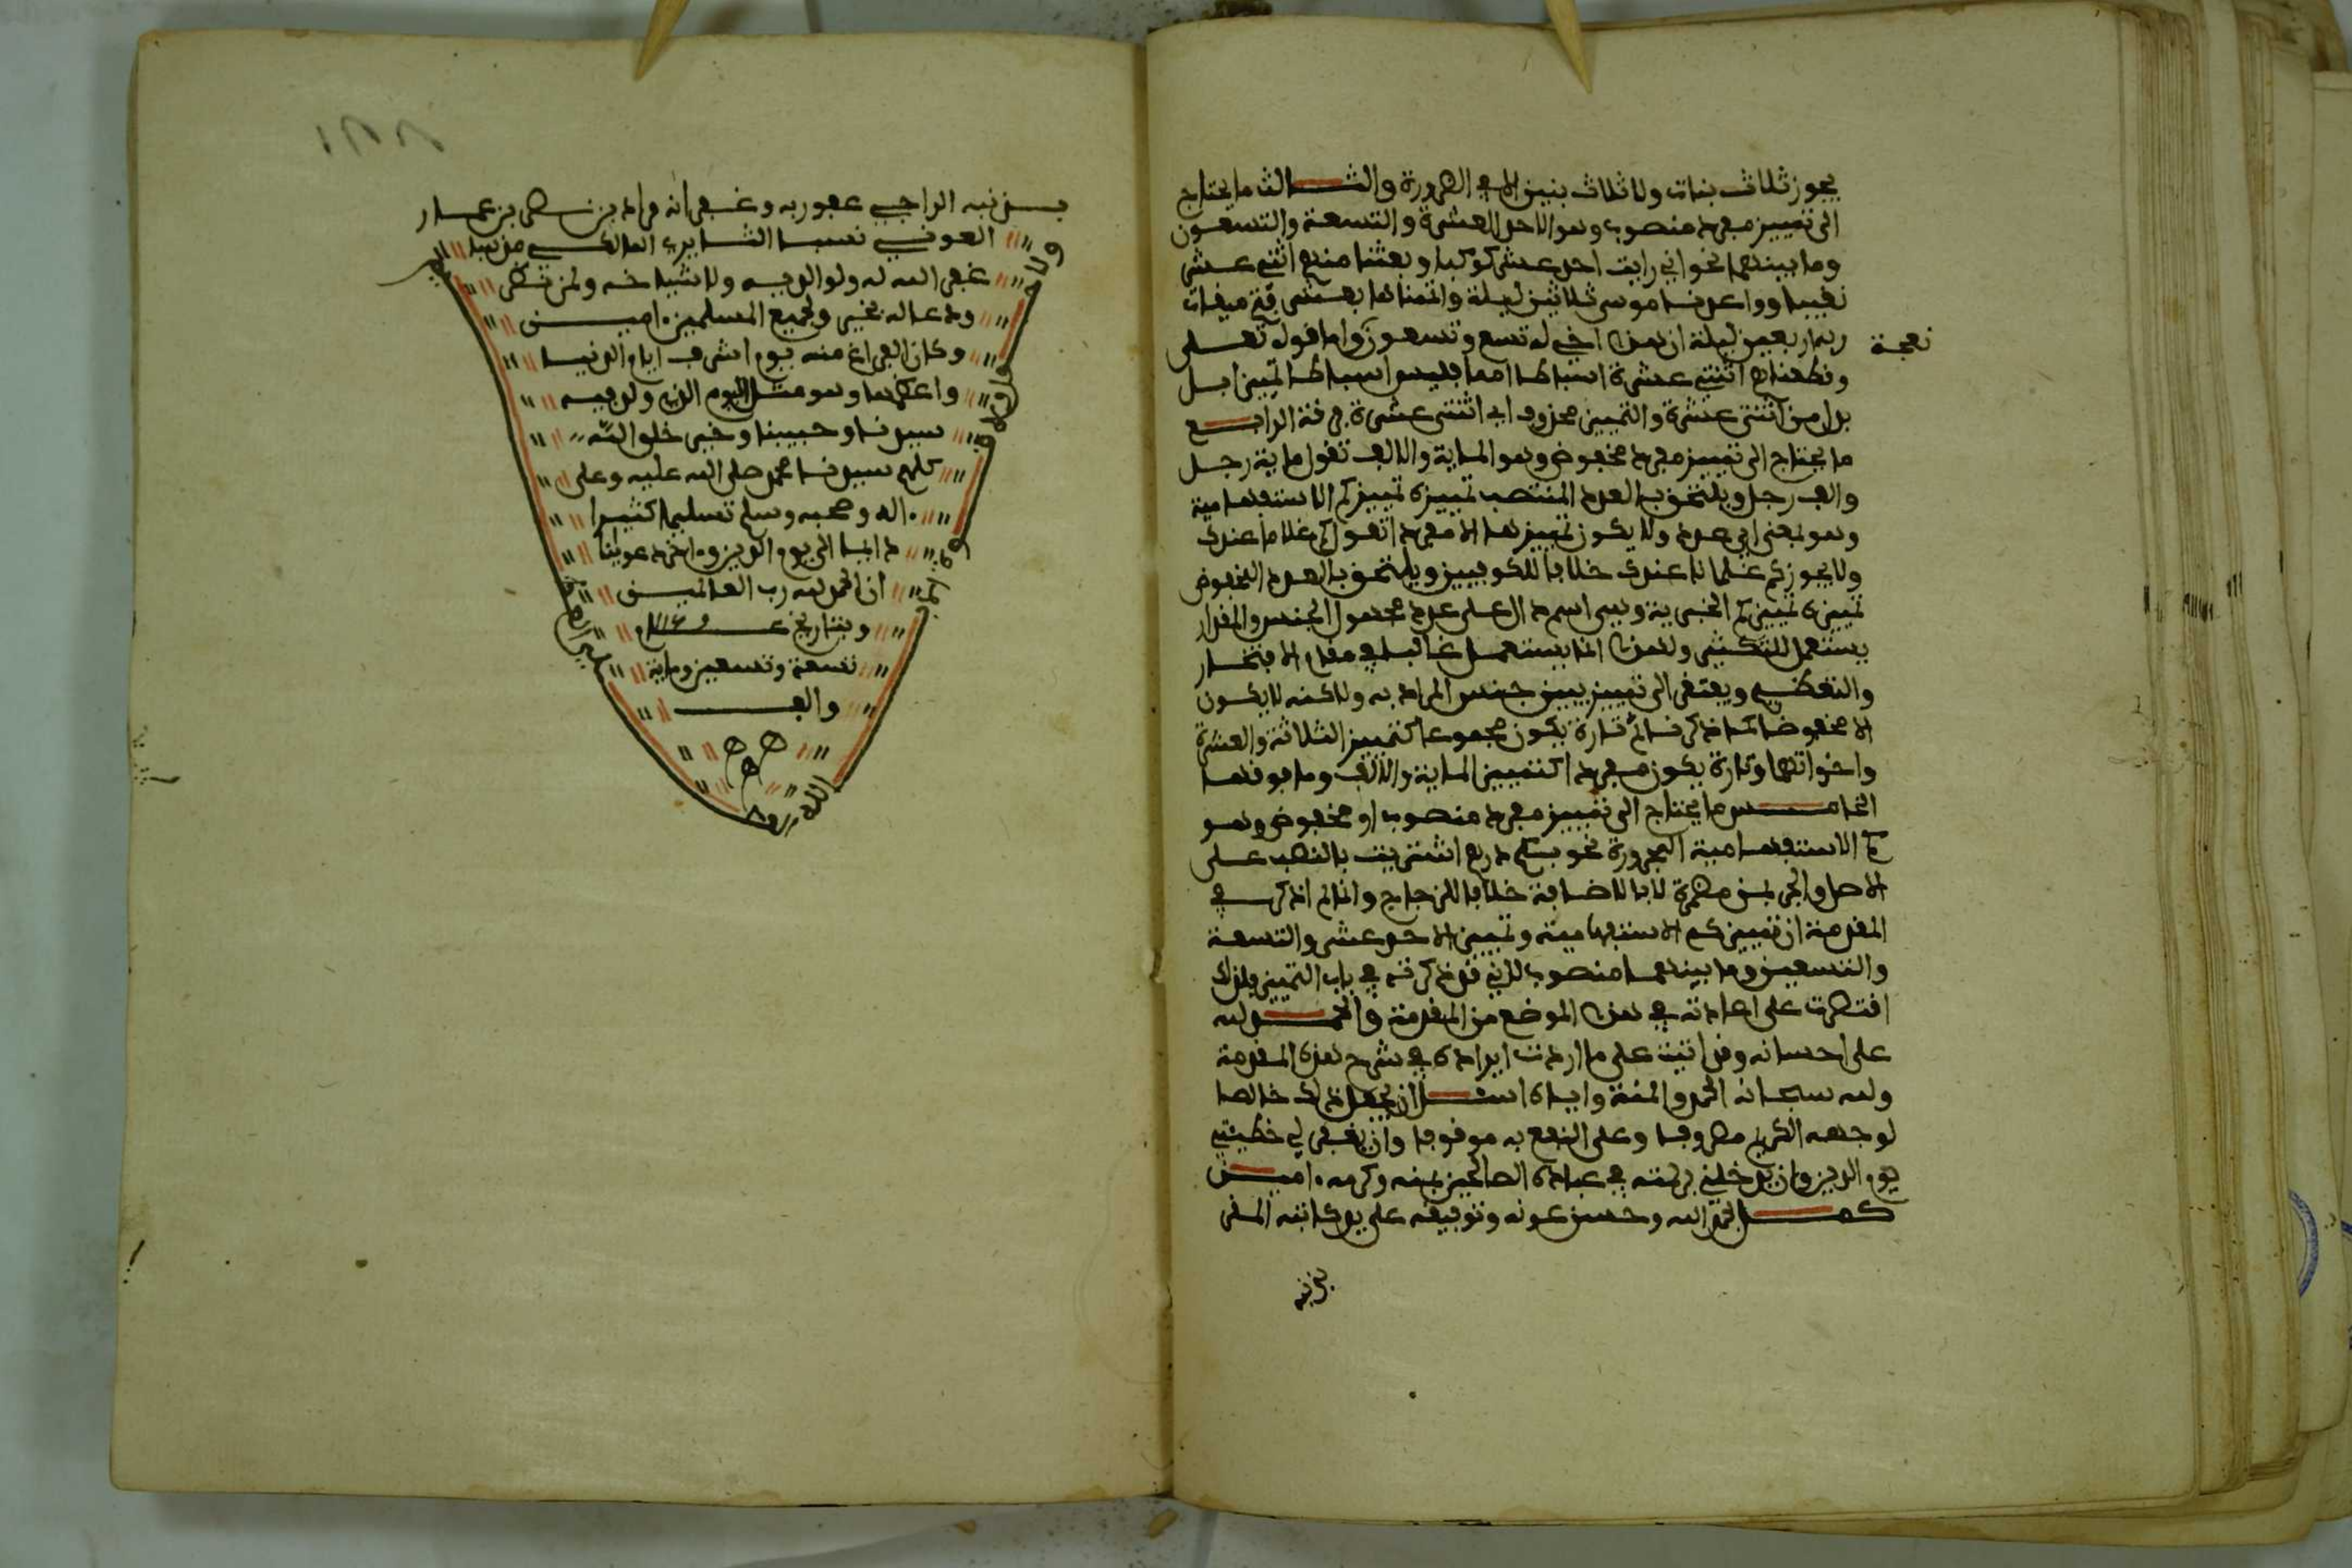 يجوز ثلاث بنات ولا ثلاث بنين الا في الضرورة والثالث ما يحتاج
الى تمييز مفرد منصوب وهو الاحد العشرة والتسعة والتسعون
وما بينهما نحو اني رايت احد عشر كوكبا وبعثنا منهم اثني عشر
نقيبا وواعدنا موسى ثلاثين ليلة واتممناها بعشر فتم ميقات
ربه اربعين ليلة ان هذا اخي له تسع وتسعون واما قوله تعلى
نعجة
وقطعناهم اثنتي عشرة اسباطا امما فليس اسباطا تمييز بل
بدل من اثنتي عشرة والتمييز محذوف اي اثنتى عشرة فرقة الرابع
ما يحتاج الى تمييز مفرد مخفوض وهو الماية والالف تقول ماية رجل
والف رجل ويلتحق بالعدد المنتصب تمييزه تمييز كم الاستفهامية
وهو بمعنى اي عدد ولا يكون تمييزها الا مفردا تقول كم غلاما عندك
ولا يجوز كم غلمانا عندك خلافا للكوفيين ويلتحق بالعدد المخفوض
تمييزه تمييز كم الخبرية وهي اسم دال على عدد مجهول الجنس والمقدار
يستعمل للتكثير ولهذا انما يستعمل غالبا في مقام الافتخار
والتعظيم ويفتقر الى تمييز يبين جنس المراد به ولاكنه لا يكون
الا مخفوضا كما ذكرنا ثم تارة يكون مجموعا كتمييز الثلاثة والعشرة
واخواتهما وتارة يكون مفردا كتمييز الماية والالف وما فوقهما
الخامس ما يحتاج الى تمييز مفرد منصوب او مخفوض وهو
كم الاستفهامية المجرورة نحو بكم درهم اشتريت بالنصب على
الاصل والجر بمن مضمرة لا بالاضافة خلافا للزجاج وانما لم اذكر في
المقدمة ان تمييز كم الاستفهامية وتمييز الاحد عشر والتسعة
والتسعين وما بينهما منصوب لاني قد ذكرته في باب التمييز فلذلك
اقتصرت على اعادته في هذا الموضع من المقدمة والحمد لله
على احسانه وقد اتيت على ما اردت ايراده في شرح هذه المقدمة
ولله سبحانه الحمد والمنة واياه اسئل ان يجعل ذلك خالصا
لوجهه الكريم مصروفا وعلى النفع به موقوفا وان يغفر لي خطيئتي
يوم الدين وان يدخلني برحمته في عباده الصالحين بمنه وكرمه . امين
كمل بحمد الله وحسن عونه وتوفيقه على يد كاتبه المقر
بذنبه
بذنبه الراجي عفو ربه وغفرانه مراد بن بن عمار
العوفي نسبا المالكي مذهبا
غفر الله له ولوالديه ولاشياخه ولمن نظر
ودعا له بخير ولجميع المسلمين . امين
وكان الفراغ منه يوم اشرف ايام الدنيا
واعظمها وهو مثل اليوم الذي ولد فيه
سيدنا وحبيبنا وخير خلق الله
كلهم سيدنا محمد صلى الله عليه وعلى
اله وصحبه وسلم تسليما كثيرا
دائما الى يوم الدين واخر دعوينا
ان الحمد لله رب العالمين
وبتاريخ عام
تسعة وتسعين وماية
والف
ه ه
ه